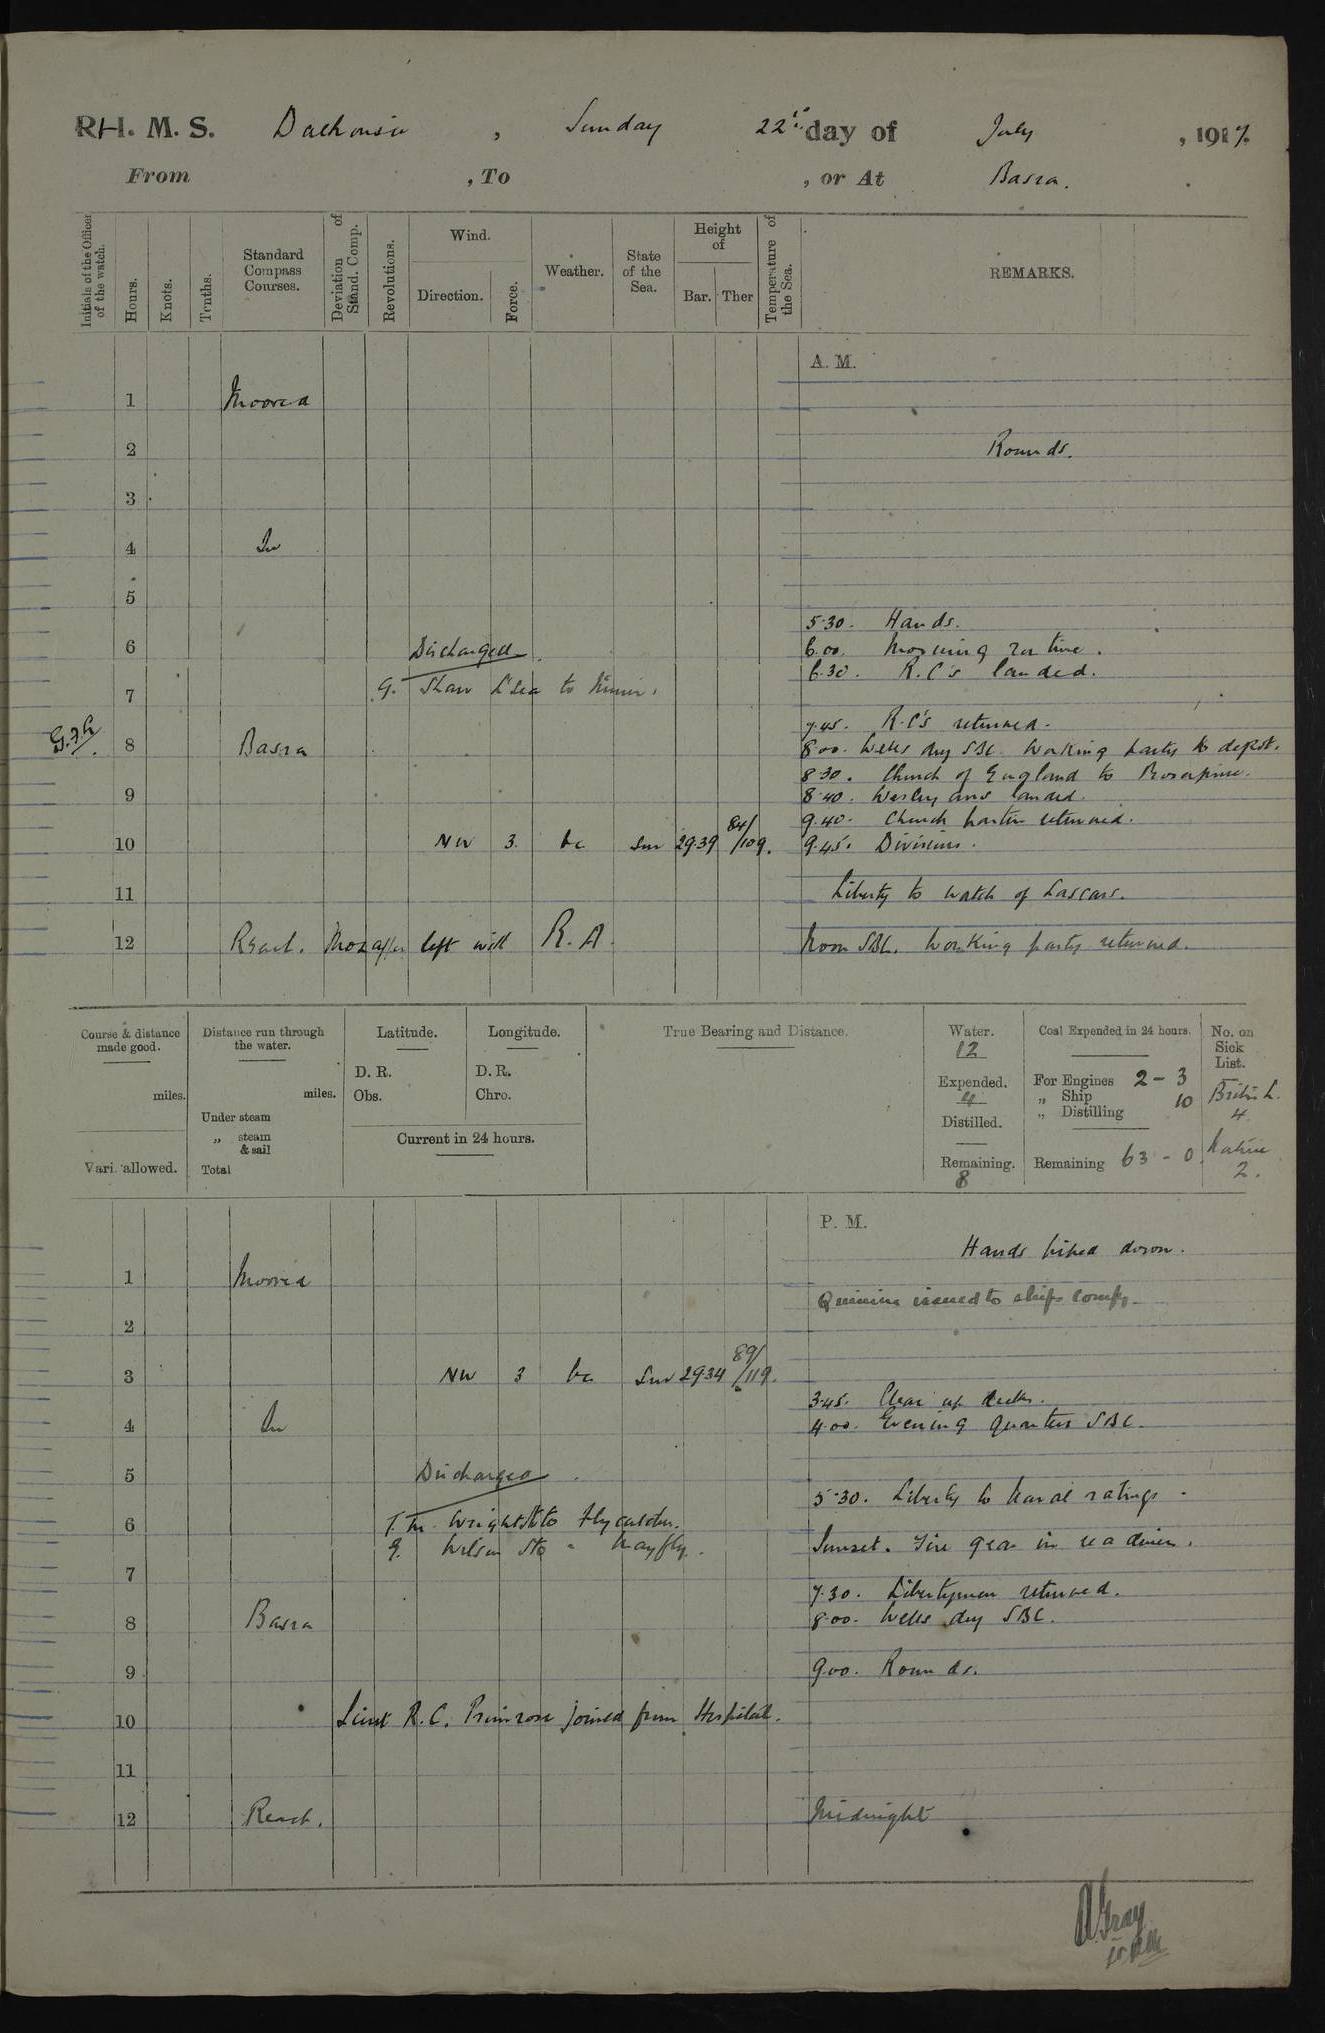 R.H. M. S. Dalhousie, Sunday 22nd day of July, 1917.
From , To , or At Basra.
Initials of the Officer of the watch.
Hours.
Knots.
Tenths.
Standard Compass Courses.
Deviation of Stand. Comp.
Revolutions.
Wind.
Direction.
Force.
Weather.
State of the Sea.
Height of
Bar. Ther
Temperature of the Sea.
REMARKS.
A. M.
1 Moored
2 Rounds.
3
4 In
5
5.30. Hands.
6 Discharged 6.00. Morning routine.
6.30. R.C's landed.
7 G. Shaw to
7.45. R.C's returned.
8 Basra 8.00. Wells dry SBC. Working party to depot.
8.30. Church of England to Proserpine.
9 8.40. Wesleyans landed.
9.40. Church parties returned.
10 NW 3. bc Sm 29.39 84/109. 9.45. Divisions.
11 Liberty to watch of Lascars.
12 Reach. Mozaffer left with R.A. Noon SBC. Working party returned.
Course & distance made good.
miles.
Vari. allowed.
Distance run through the water.
miles.
Under steam
„ steam & sail
Total
Latitude.
D. R.
Obs.
Longitude.
D. R.
Chro.
Current in 24 hours.
True Bearing and Distance.
Water.
12
Expended.
4
Distilled.
Remaining.
8
Coal Expended in 24 hours.
For Engines 2 - 3
„ Ship 10
„ Distilling
Remaining 63 - 0
No. on Sick List.
British.
4
Native
2.
P. M.
Hands piped down.
1 Moored
Quinine issued to ships comp.
2
3 NW 3 bc Sm 29.34 89/119.
3.45. Clear up decks.
4 In 4.00. Evening quarters SBC.
5 Discharged
5.30. Liberty to Naval ratings.
6 T. M. Wright Sto to Flycatcher.
G. Wilson Sto " Mayfly.
Sunset. Fire gear in readiness.
7
7.30. Libertymen returned.
8 Basra 8.00. Wells dry SBC.
9 9.00. Rounds.
10 Lieut R.C. Primrose joined from Hospital.
11
12 Reach. Midnight
A. Gray